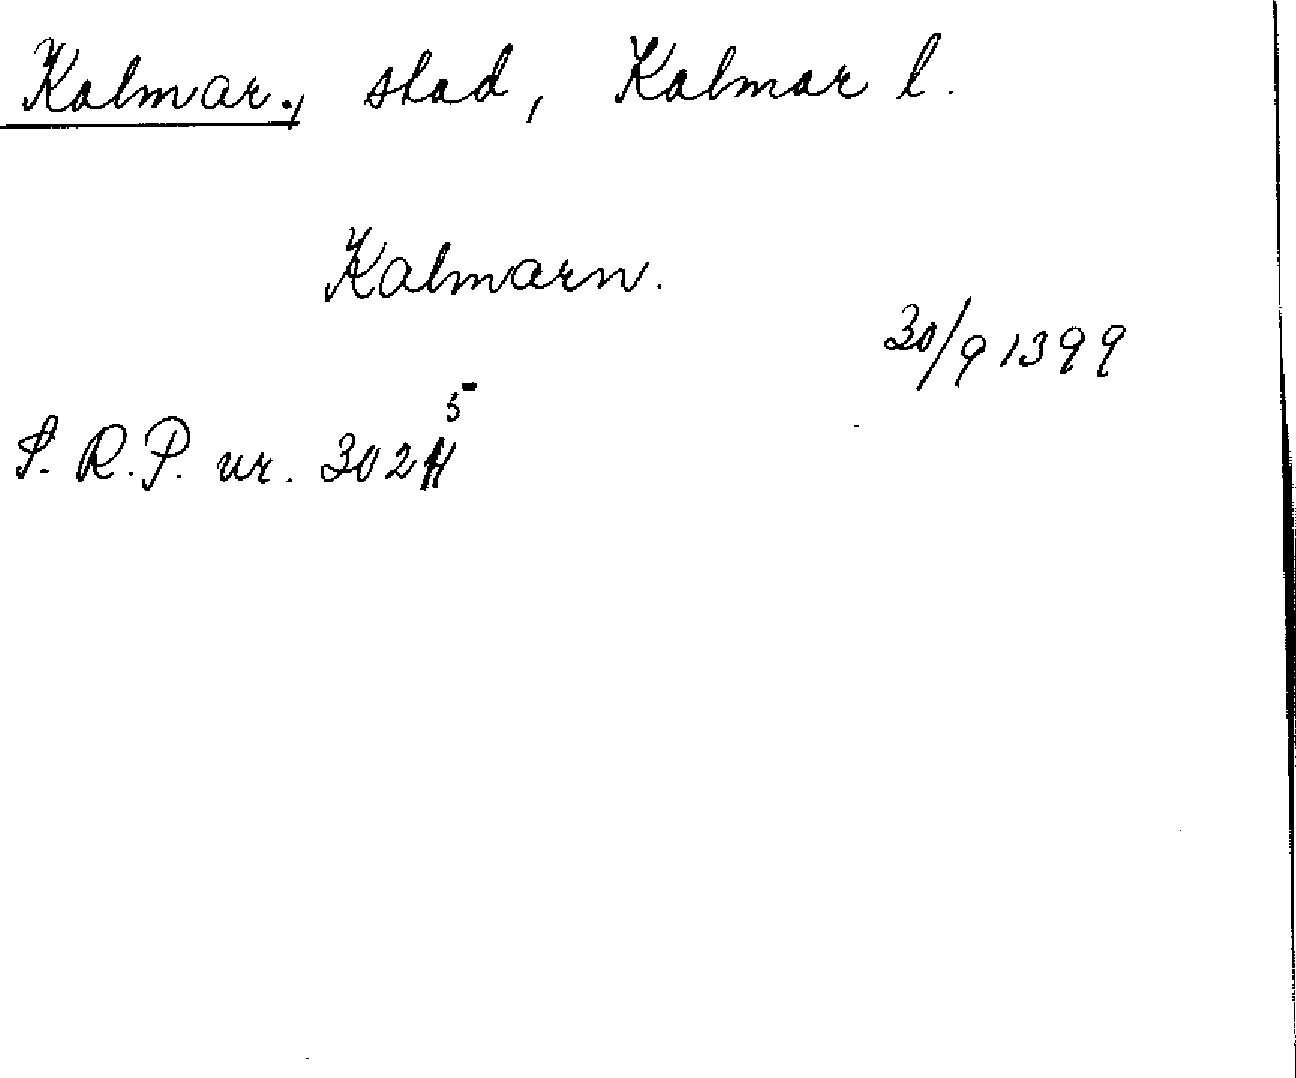 Kalmar., stad, Kalmar l.
Kalmarn.
30/9 1399
S. R. P. nr. 3025